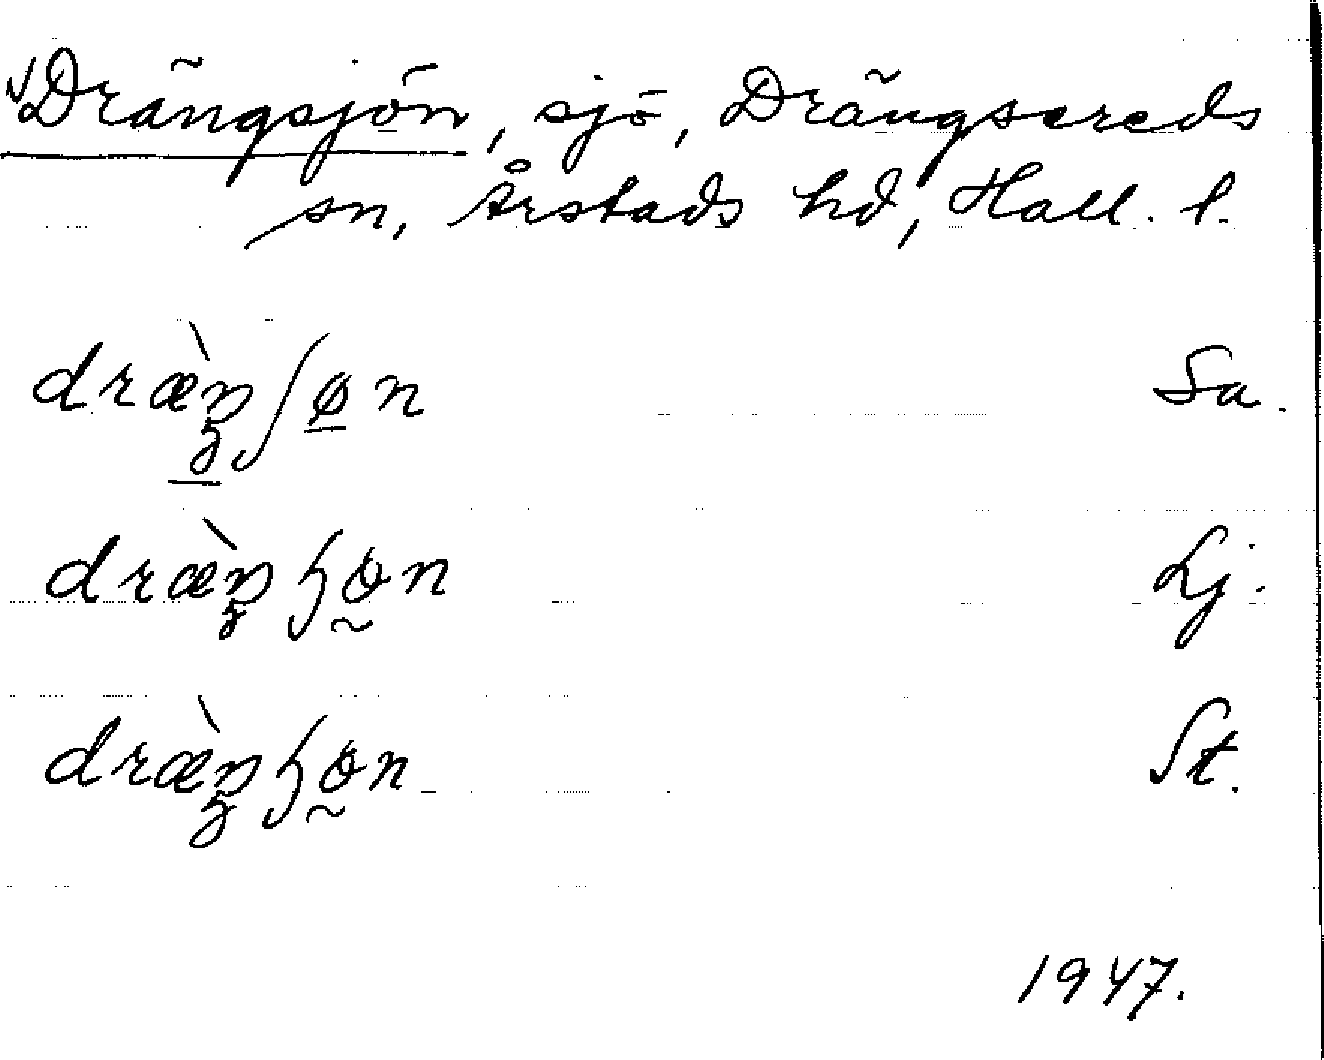 Drängsjön, sjö, Drängsereds
sn, Årstads hd, Hall. l.
dræ̀ŋʃøn Sa.
dræ̀ŋɧøn Lj.
dræ̀ŋɧøn St.
1947.